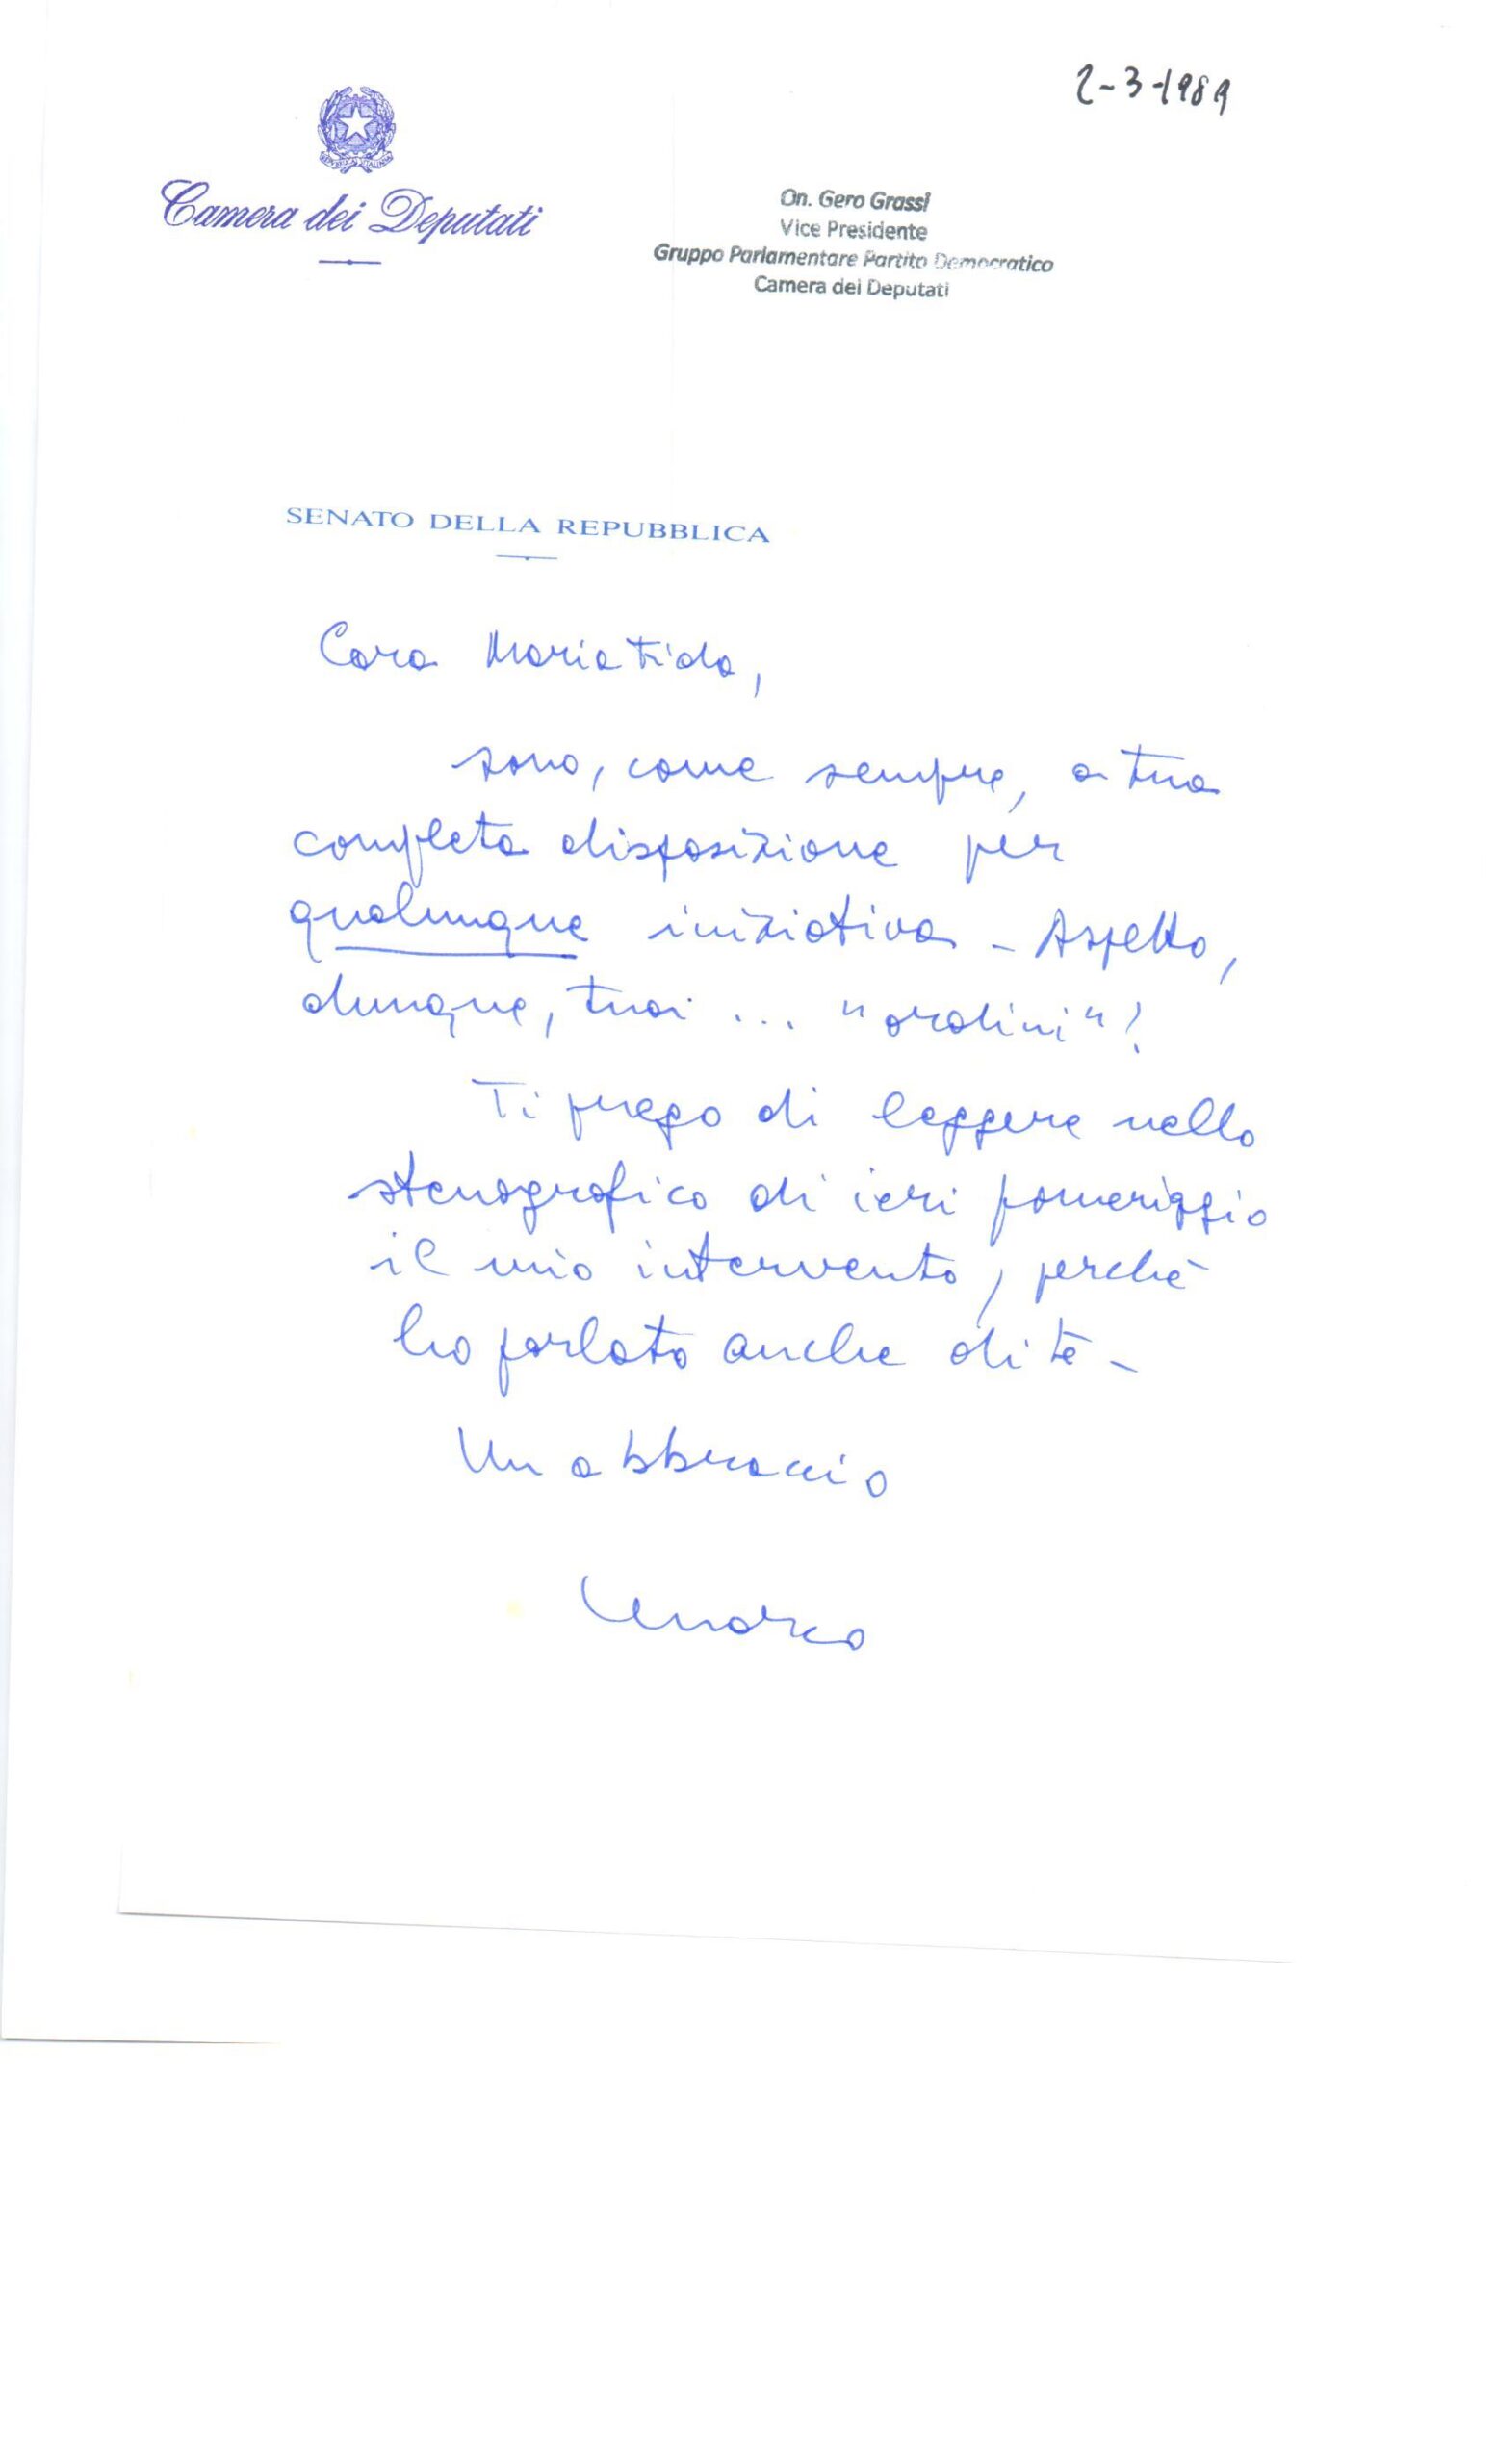 2-3-1989
Camera dei Deputati
On. Gero Grassi
Vice Presidente
Gruppo Parlamentare Partito Democratico
Camera dei Deputati
SENATO DELLA REPUBBLICA
Cara Maria Fida,
sono, come sempre, a tua
completa disposizione per
qualunque iniziativa - Aspetto,
dunque, tuoi ... "ordini"!
Ti prego di leggere nello
stenografico di ieri pomeriggio
il mio intervento, perchè
ho parlato anche di te -
Un abbraccio